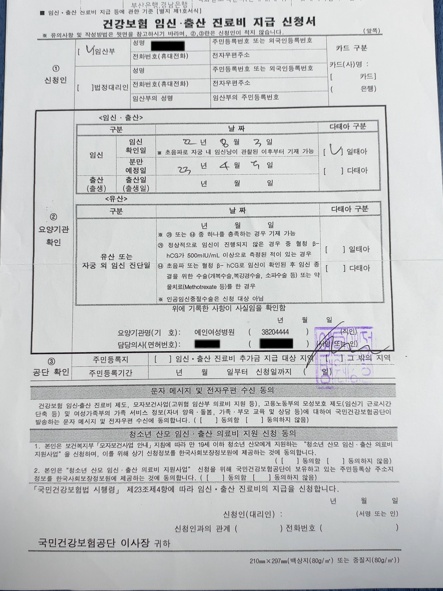 부산은행,경남은행
■ 임신·출산 진료비 지급 등에 관한 기준 [별지 제1호서식]
건강보험 임신·출산 진료비 지급 신청서
(앞쪽)
①
신청인
[ ✓ ]임산부
성명
주민등록번호 또는 외국인등록번호
전화번호(휴대전화)
전자우편주소
카드 구분
카드(사)명 :
[ 카드]
[ 은행]
[ ]법정대리인
성명
주민등록번호 또는 외국인등록번호
전화번호(휴대전화)
전자우편주소
임산부의 성명
임산부의 주민등록번호
②
요양기관
확인
<임신·출산>
구분
날 짜
다태아 구분
임신
임신
확인일
22 년 8 월 3 일
※ 초음파로 자궁 내 임신낭이 관찰된 이후부터 기재 가능
분만
예정일
23 년 4 월 5 일
[ ✓ ] 일태아
[ ] 다태아
출산
(출생)
출산일
(출생일)
년 월 일
<유산>
구분
날 짜
다태아 구분
유산 또는
자궁 외 임신 진단일
년 월 일
※ ㉮ 또는 ㉯ 중 하나를 충족하는 경우 기재 가능
㉮ 정상적으로 임신이 진행되지 않은 경우 중 혈청 β-
hCG가 500mIU/mL 이상으로 측정된 적이 있는 경우
㉯ 초음파 또는 혈청 β- hCG로 임신이 확인된 후 임신 종
결을 위한 수술(개복수술,복강경수술, 소파수술 등) 또는 약
물치료(Methotrexate 등)를 한 경우
※ 인공임신중절수술은 신청 대상 아님
[ ] 일태아
[ ] 다태아
위에 기록한 사항이 사실임을 확인함
년 월 일
요양기관명(기 호): 에인여성병원 ( 38204444 )
담당의사(면허번호):
③
공단 확인
주민등록지
[ ] 임신·출산 진료비 추가금 지급 대상 지역 [ ] 그 밖의 지역
주민등록기간
년 월 일부터 신청일까지 ( 일)
문자 메시지 및 전자우편 수신 동의
건강보험 임신·출산 진료비 제도, 모자보건사업(고위험 임산부 의료비 지원 등), 고용노동부의 모성보호 제도(임신기 근로시간
단축 등) 및 여성가족부의 가족 서비스 정보(자녀 양육·돌봄, 가족·부모 교육 및 상담 등)에 대하여 국민건강보험공단이
발송하는 문자 메시지 및 전자우편 수신에 동의합니다. ( [ ] 동의함 [ ] 동의하지 않음)
청소년 산모 임신·출산 의료비 지원 신청 동의
1. 본인은 보건복지부 「모자보건사업 안내」지침에 따라 만 19세 이하 청소년 산모에게 지원하는 "청소년 산모 임신·출산 의료비
지원사업"을 신청하며, 이를 위해 상기 신청정보를 한국사회보장정보원에 제공하는 것에 동의합니다.
( [ ] 동의함 [ ] 동의하지 않음)
2. 본인은 "청소년 산모 임신·출산 의료비 지원사업" 신청을 위해 국민건강보험공단이 보유하고 있는 주민등록상 주소지
정보를 한국사회보장정보원에 제공하는 것에 동의합니다. ( [ ] 동의함 [ ] 동의하지 않음)
「국민건강보험법 시행령」 제23조제4항에 따라 임신·출산 진료비의 지급을 신청합니다.
년 월 일
신청인(대리인) : (서명 또는 인)
신청인과의 관계 ( ) 전화번호 ( )
국민건강보험공단 이사장 귀하
210㎜×297㎜(백상지(80g/㎡) 또는 중질지(80g/㎡))